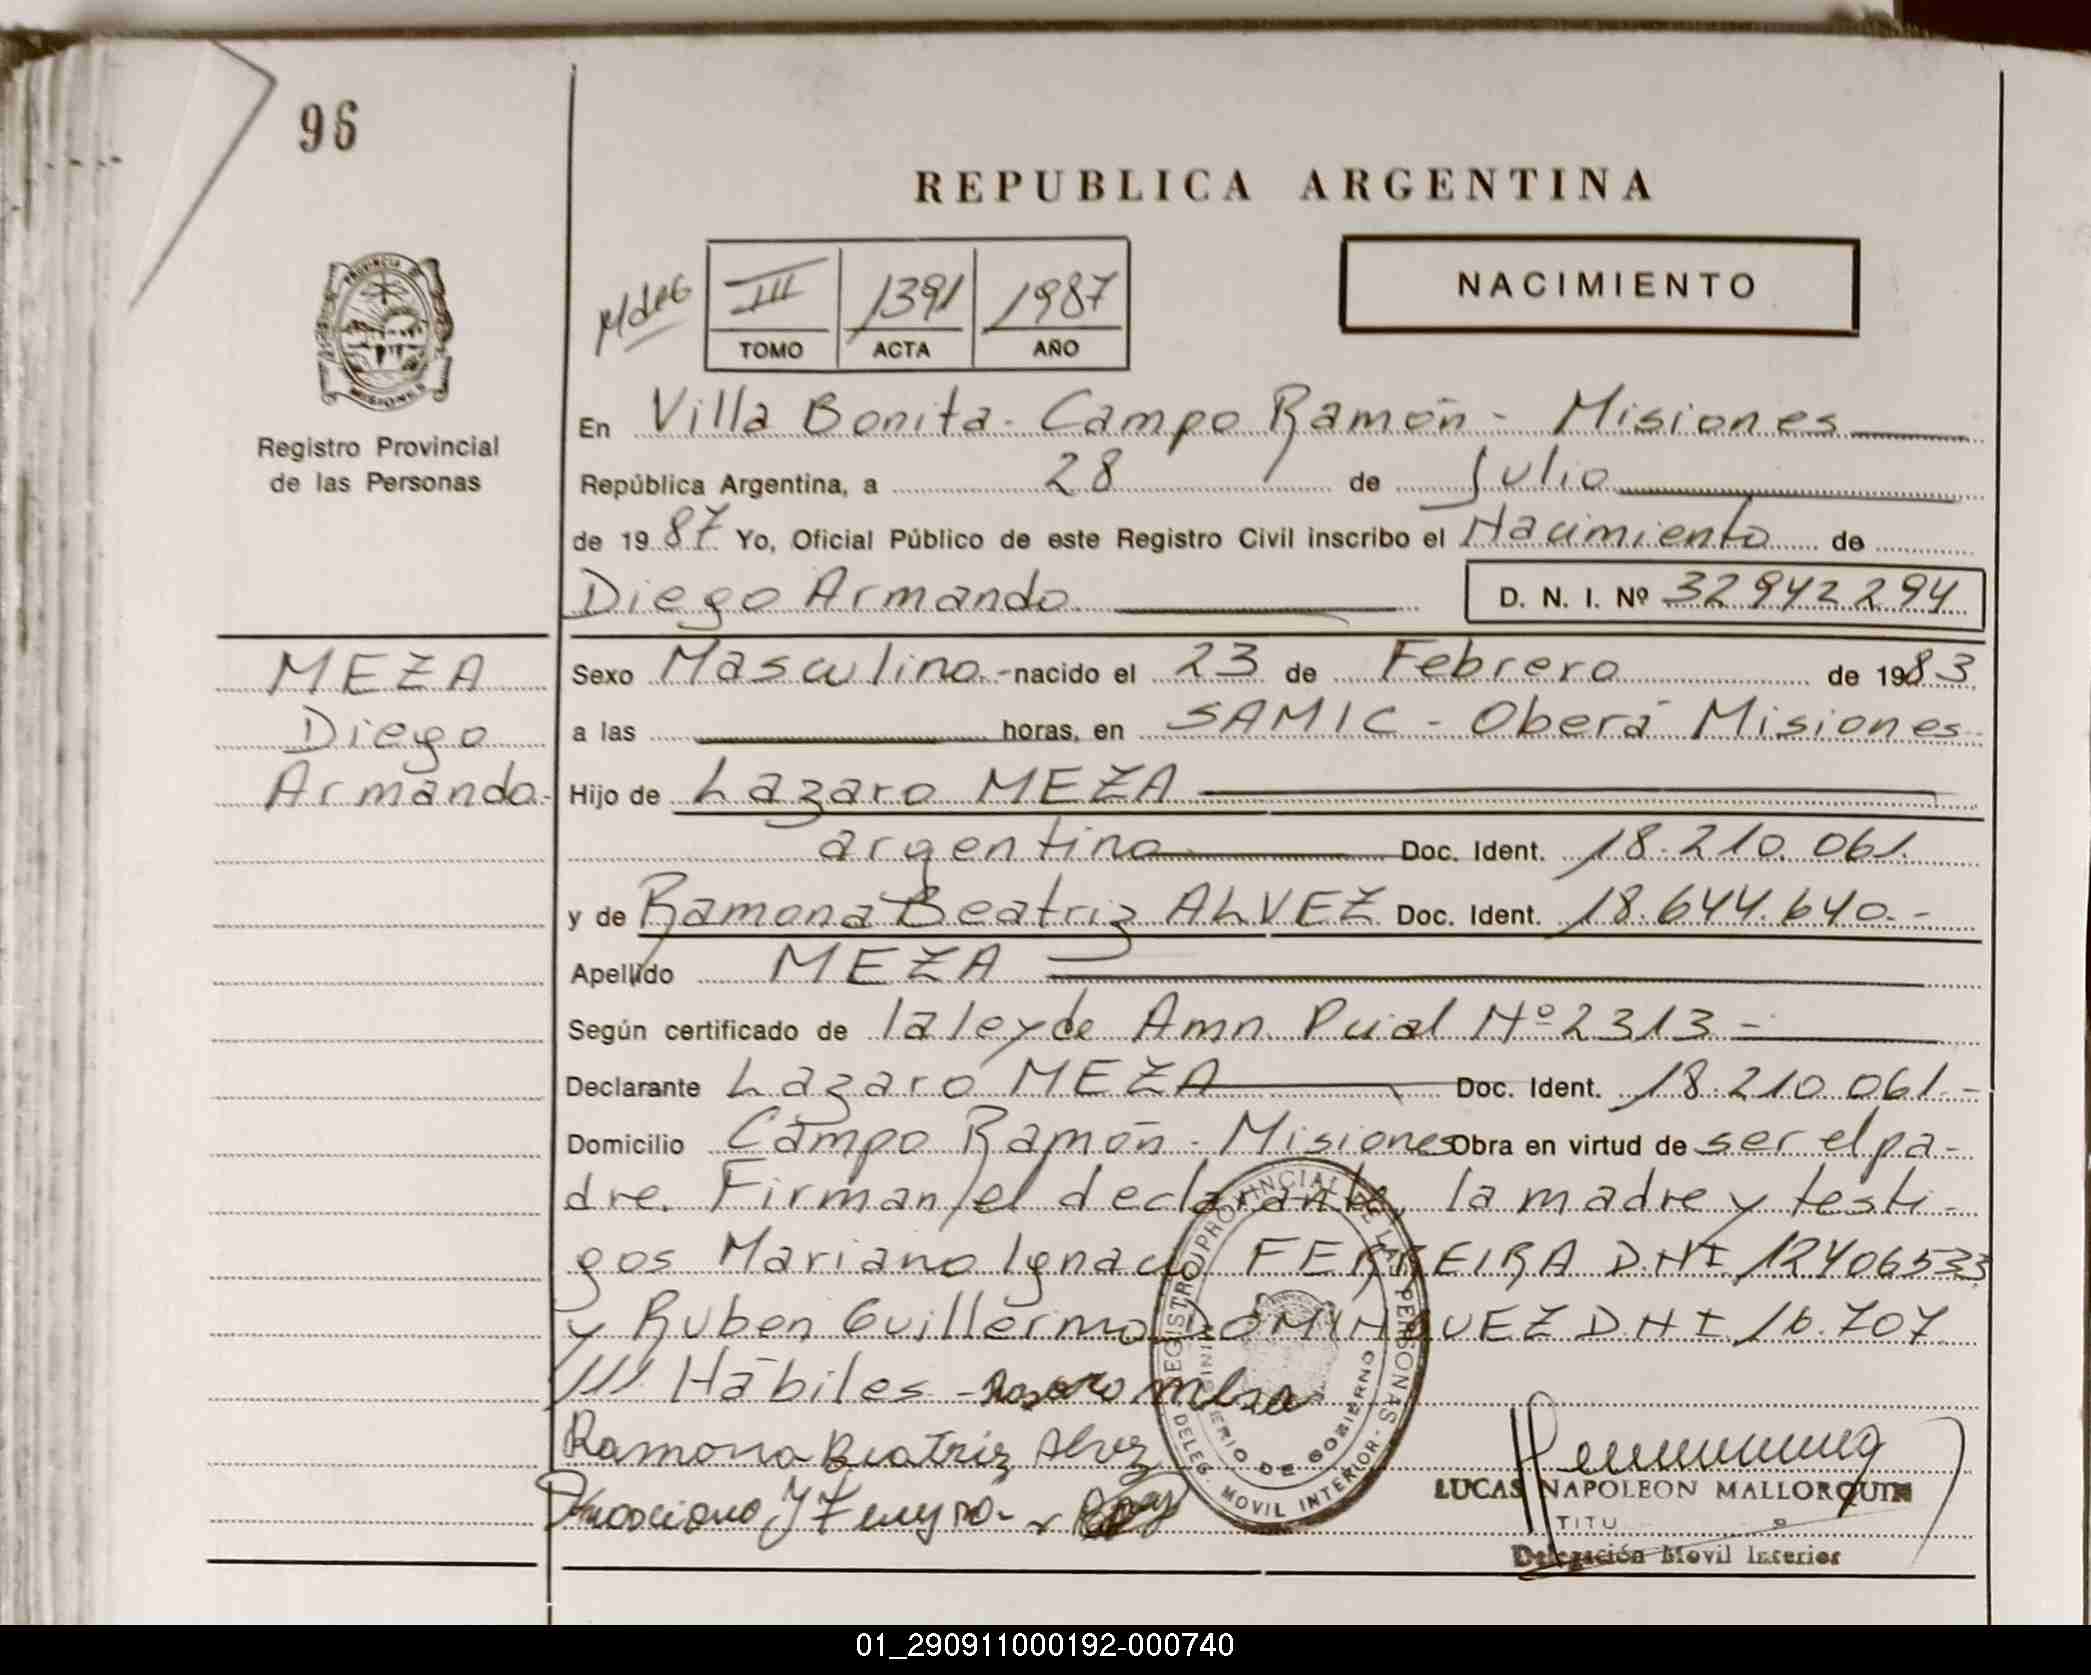 96
REPUBLICA ARGENTINA
III 1391 1987
TOMO ACTA AÑO
NACIMIENTO
PROVINCIA DE MISIONES
Registro Provincial
de las Personas
En Villa Bonita - Campo Ramón - Misiones
República Argentina, a 28 de Julio
de 1987 Yo, Oficial Público de este Registro Civil inscribo el Nacimiento de
Diego Armando D. N. I. Nº 32942294
MEZA
Diego
Armando.-
Sexo Masculino.- nacido el 23 de Febrero de 1983
a las horas, en SAMIC - Oberá Misiones
Hijo de Lazaro MEZA
argentino Doc. Ident. 18.210.061.
y de Ramona Beatriz ALVEZ Doc. Ident. 18.644.640.-
Apellido MEZA
Según certificado de la ley de Amn. Pcial Nº 2313-
Declarante Lazaro MEZA Doc. Ident. 18.210.061.-
Domicilio Campo Ramón - Misiones Obra en virtud de ser el pa-
dre. Firman el declarante, la madre y testi-
gos Mariano Ignacio FERREIRA DNI 12406533
y Ruben Guillermo DOMINGUEZ DNI 16.707
111 Hábiles -
Ramona Beatriz Alvez
REGISTRO PROVINCIAL DE LAS PERSONAS
MINISTERIO DE GOBIERNO
DELEG. MOVIL INTERIOR
LUCAS NAPOLEON MALLORQUIN
Delegación Movil Interior
01_290911000192-000740